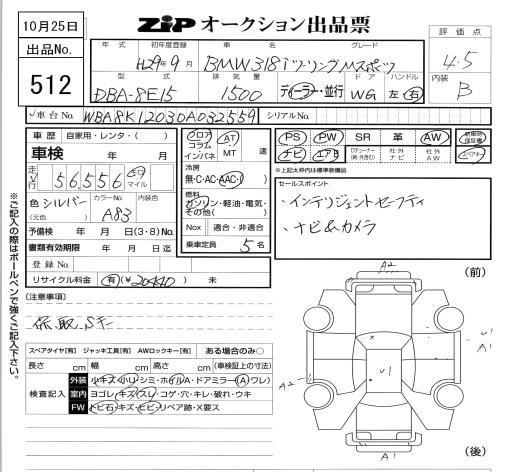 10月25日
ZiP オークション出品票
評価点
4.5
内装
B
出品No.
512
年式 初年度登録 車名 グレード
H29年9月 BMW318iツーリングMスポーツ
型式 排気量 ドア ハンドル
DBA-8E15 1500 ディーラー・並行 WG 左・右
車台No. WBA8K12030A032559 シリアルNo.
車歴 自家用・レンタ・( )
車検 年 月
走行 56,556 キロ マイル
色 シルバー (元色) カラーNo. A83 内装色
予備検 年 月 日(3・8)No.
書類有効期限 年 月 日迄
登録No.
リサイクル料金 有(¥20440) 未
フロア コラム インパネ AT MT 速
冷房 無・C・AC・AAC
燃料 ガソリン・軽油・電気・その他( )
Nox 適合・非適合
乗車定員 5名
PS PW SR 革 AW 新車時保証書
ナビ エアB TVチューナー(純・外含む) 社外ナビ 社外AW スペアキー
※上記太枠内は標準装備品
セールスポイント
・インテリジェントセーフティ
・ナビ&カメラ
※ご記入の際はボールペンで強くご記入下さい。
[注意事項]
保、取、Sキー
スペアタイヤ[有] ジャッキ工具[有] AWロックキー[有] ある場合のみ○
長さ cm 幅 cm 高さ cm (車検証上の寸法)
検査記入
外装 小キズ・小U・シミ・ホイルA・ドアミラー(A)ワレ)
室内 ヨゴレ・キズ・スレ・コゲ・穴・キレ・破れ・ウキ
FW トビ石・キズ・ヒビ・リペア跡・X要ス
(前)
A2
U1
A1
A2
U1
A1
(後)